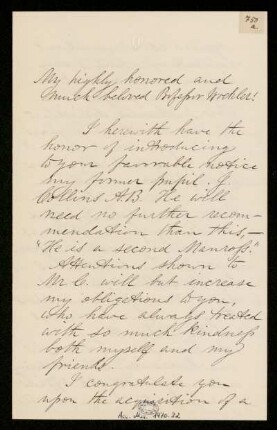 750
a
My highly honored and
much beloved Professor Woehler!
I herewith have the
honor of introducing
to your favorable notice
my former pupil. J.
Collins A.B. He will
need no further recom-
mendation than this,—
"He is a second Manross."
Attentions shown to
Mr C. will but increase
my obligations to you,
who have always treated
with so much kindness
both myself and my
friends.
I congratulate you
upon the acquisition of a
Acc. Mss. 1970.22